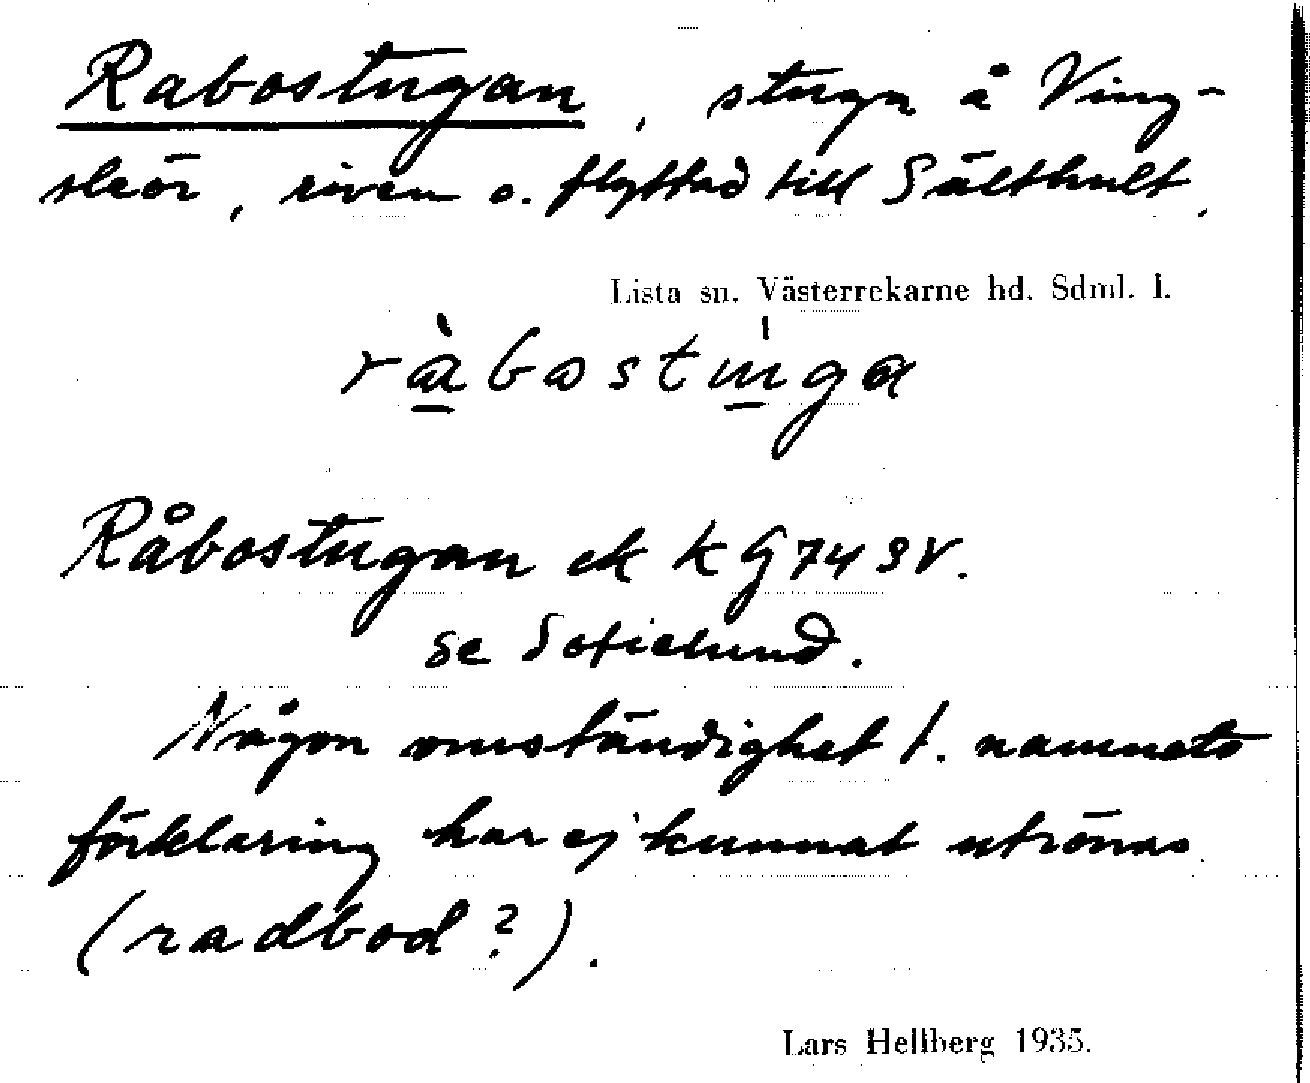 Rabostugan, stuga å Ving-
skär, riven o. flyttad till Sälthult.
Lista sn. Västerrekarne hd. Sdml. l.
ràbostuga
Råbostugan ek k G 74 SV.
se Sofielund.
Någon omständighet t. namnets
förklaring har ej kunnat utrönas
(radbod?).
Lars Hellberg 1935.